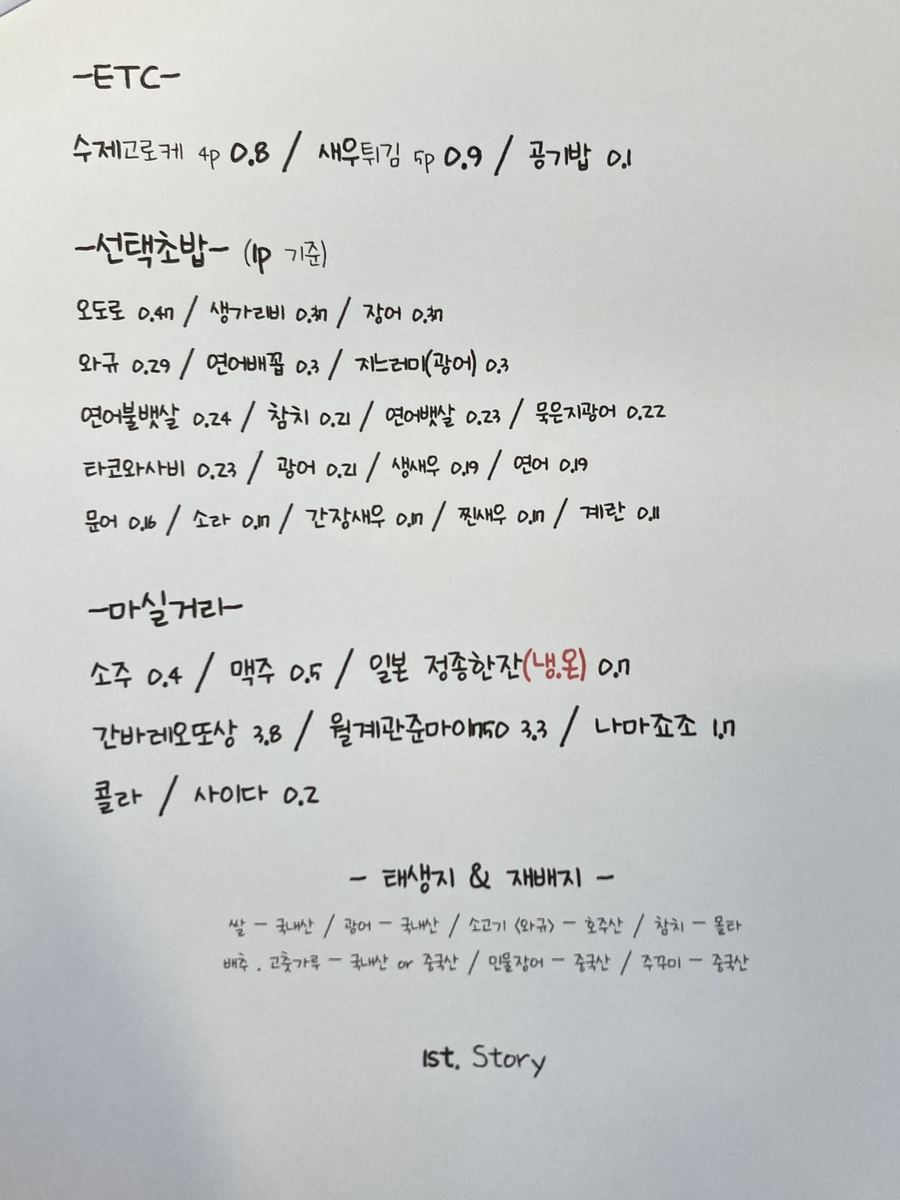 -ETC-
수제고로케 4p 0.8 / 새우튀김 5p 0.9 / 공기밥 0.1
-선택초밥- (1p 기준)
오도로 0.47 / 생가리비 0.37 / 장어 0.37
와규 0.29 / 연어배꼽 0.3 / 지느러미(광어) 0.3
연어불뱃살 0.24 / 참치 0.21 / 연어뱃살 0.23 / 묵은지광어 0.22
타코와사비 0.23 / 광어 0.21 / 생새우 0.19 / 연어 0.19
문어 0.16 / 소라 0.17 / 간장새우 0.17 / 찐새우 0.17 / 계란 0.11
-마실거라-
소주 0.4 / 맥주 0.5 / 일본 정종한잔(냉.온) 0.7
간바레오또상 3.8 / 월계관준마이750 3.3 / 나마죠조 1.7
콜라 / 사이다 0.2
- 태생지 & 재배지 -
쌀 - 국내산 / 광어 - 국내산 / 소고기 <와규> - 호주산 / 참치 - 몰타
배추 . 고춧가루 - 국내산 or 중국산 / 민물장어 - 중국산 / 주꾸미 - 중국산
1st. Story